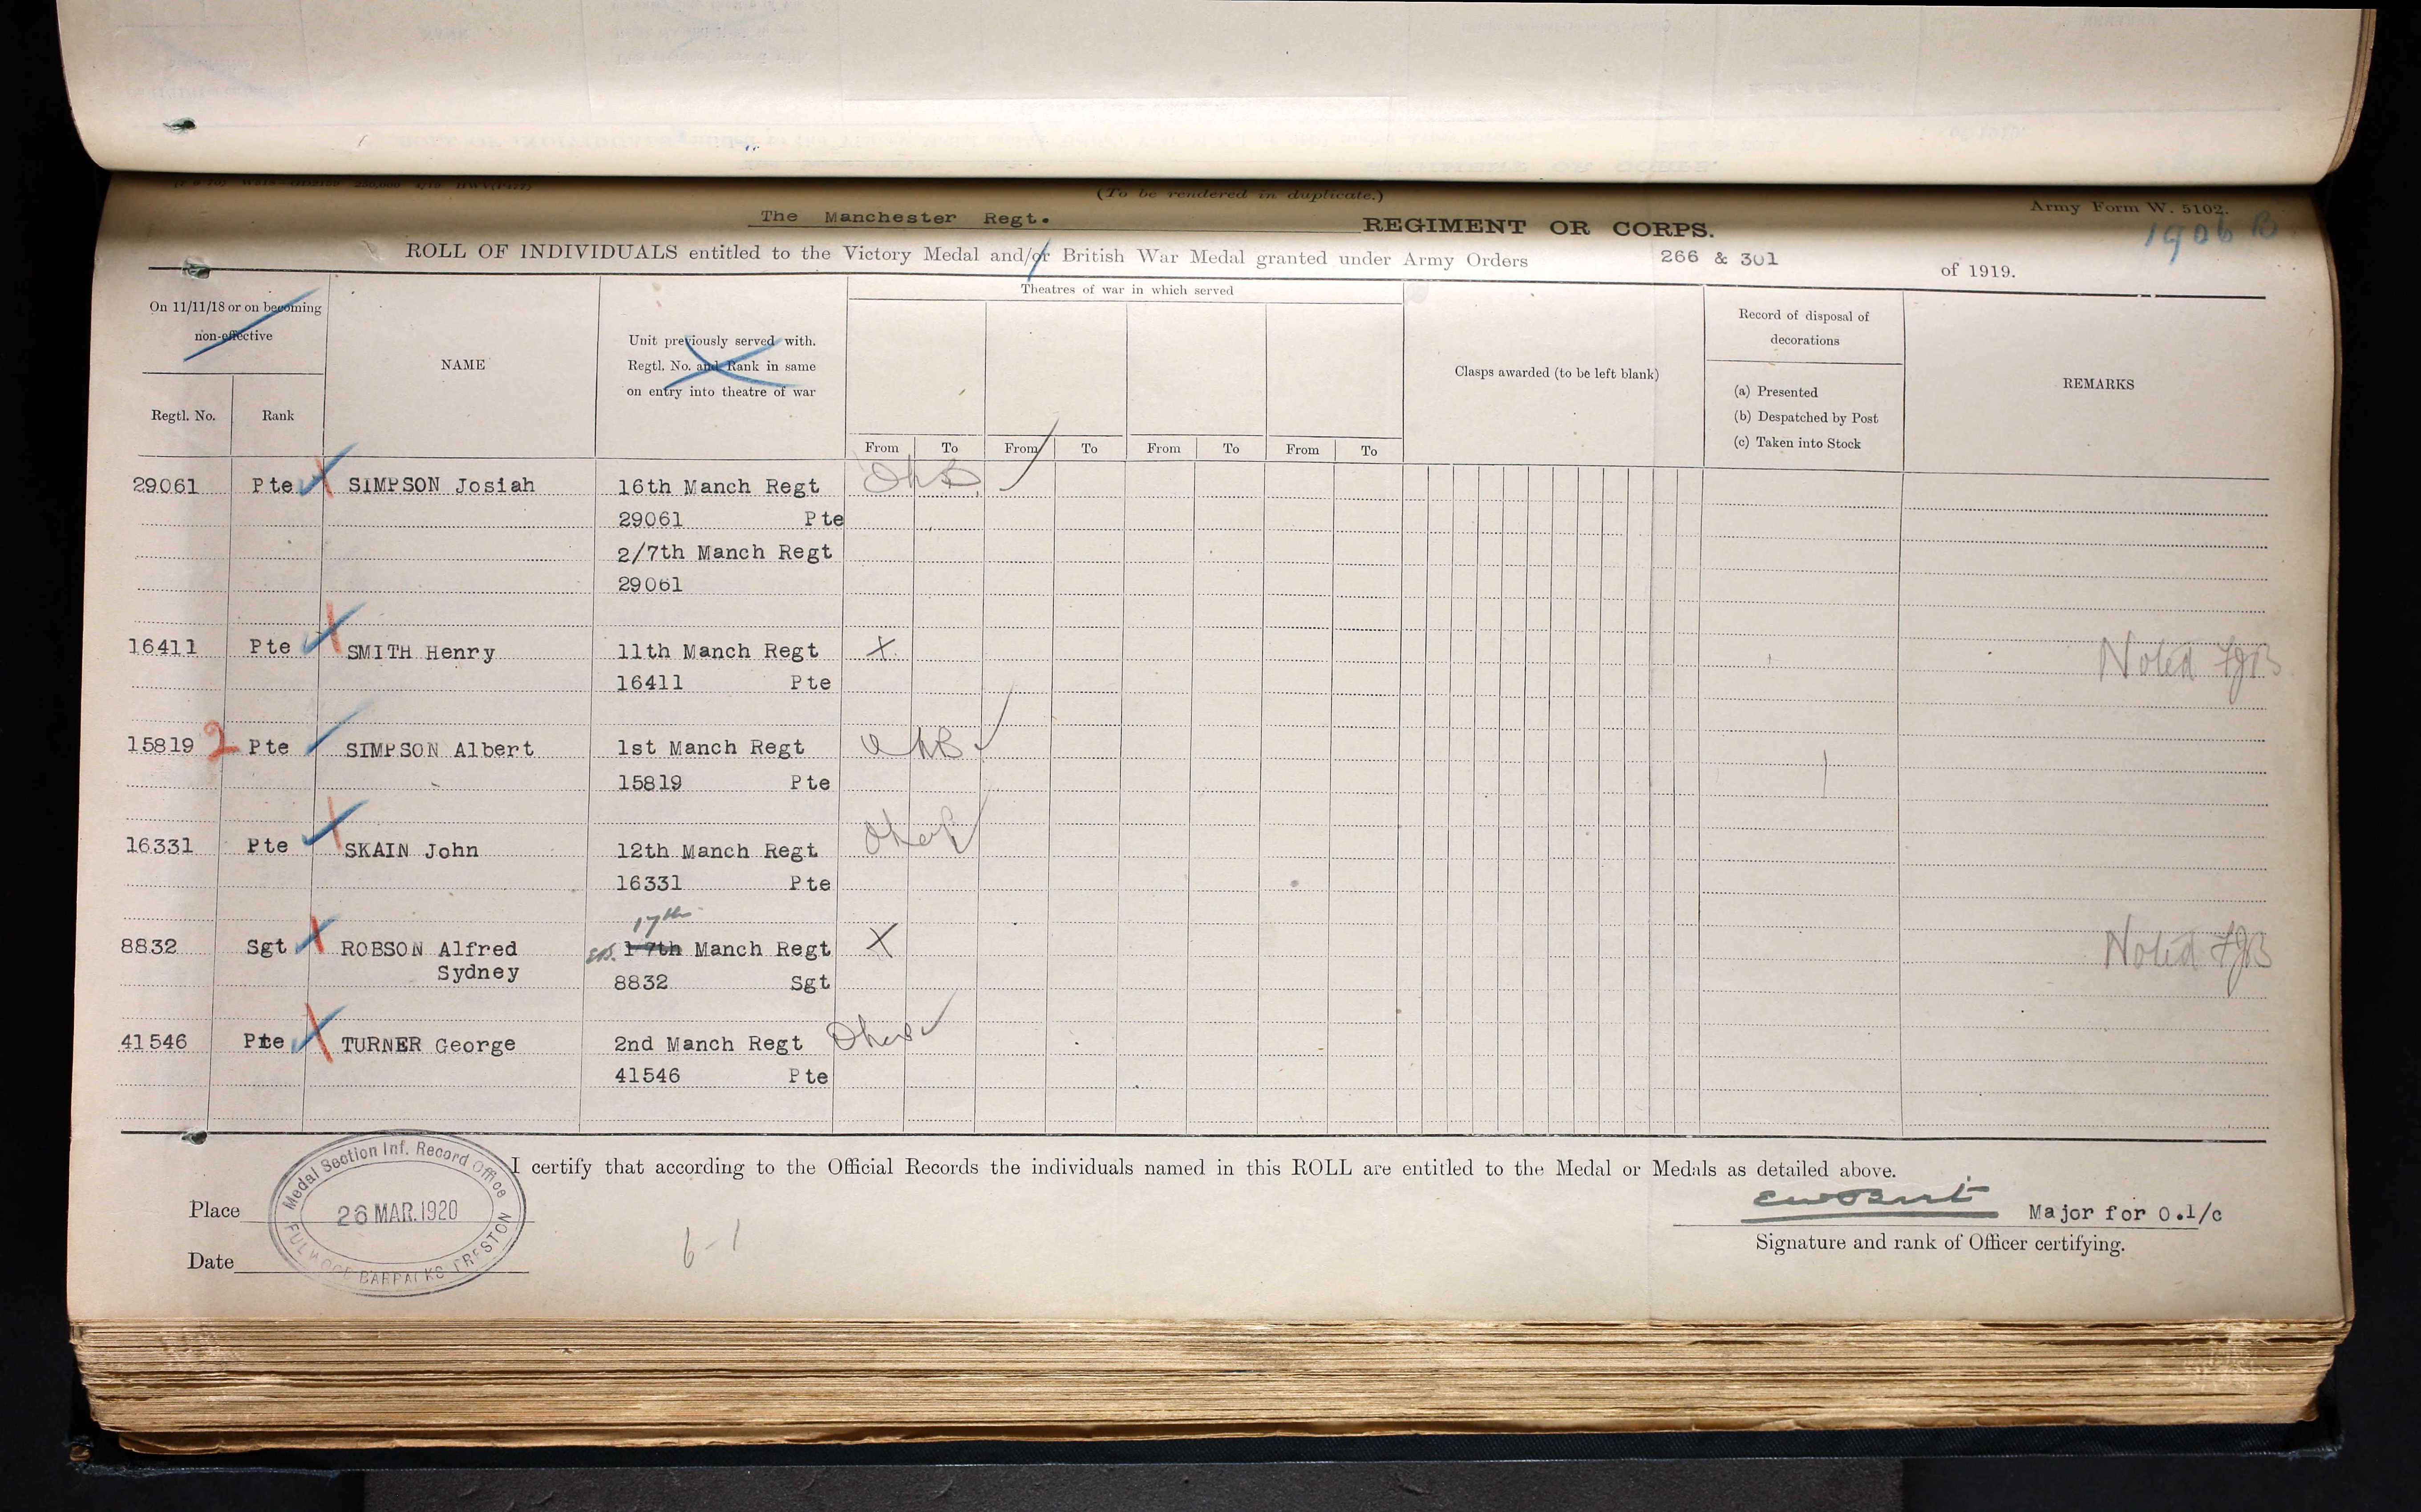 (To be rendered in duplicate.)
Army Form W. 5102.
The Manchester Regt. REGIMENT OR CORPS.
1906 B
ROLL OF INDIVIDUALS entitled to the Victory Medal and/or British War Medal granted under Army Orders 266 & 301 of 1919.
On 11/11/18 or on becoming
non-effective
Regtl. No.
Rank
NAME
Unit previously served with.
Regtl. No. and Rank in same
on entry into theatre of war
Theatres of war in which served
From To From To From To From To
Clasps awarded (to be left blank)
Record of disposal of
decorations
(a) Presented
(b) Despatched by Post
(c) Taken into Stock
REMARKS
29061 Pte SIMPSON Josiah 16th Manch Regt
29061 Pte
2/7th Manch Regt
29061
16411 Pte SMITH Henry 11th Manch Regt X Noted FJB
16411 Pte
15819 2 Pte SIMPSON Albert 1st Manch Regt
15819 Pte
16331 Pte SKAIN John 12th Manch Regt
16331 Pte
17th
8832 Sgt ROBSON Alfred 1 7th Manch Regt X Noted FJB
Sydney
8832 Sgt
41546 Pte TURNER George 2nd Manch Regt
41546 Pte
I certify that according to the Official Records the individuals named in this ROLL are entitled to the Medal or Medals as detailed above.
Medal Section Inf. Record Office
26 MAR. 1920
FULWOOD BARRACKS PRESTON
Place
Date
6-1
Major for O.I/c
Signature and rank of Officer certifying.